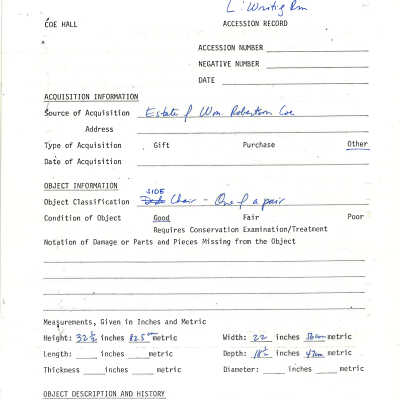 L. Writing Rm
COE HALL ACCESSION RECORD
ACCESSION NUMBER
NEGATIVE NUMBER
DATE
ACQUISITION INFORMATION
Source of Acquisition Estate of Wm Robertson Coe
Address
Type of Acquisition Gift Purchase Other
Date of Acquisition
OBJECT INFORMATION
SIDE
Object Classification Chair - One of a pair
Condition of Object Good Fair Poor
Requires Conservation Examination/Treatment
Notation of Damage or Parts and Pieces Missing from the Object
Measurements, Given in Inches and Metric
Height: 32 1/2 inches 82.5 cm metric Width: 22 inches 56cm metric
Length: inches metric Depth: 18 1/2 inches 47cm metric
Thickness inches metric Diameter: inches metric
OBJECT DESCRIPTION AND HISTORY